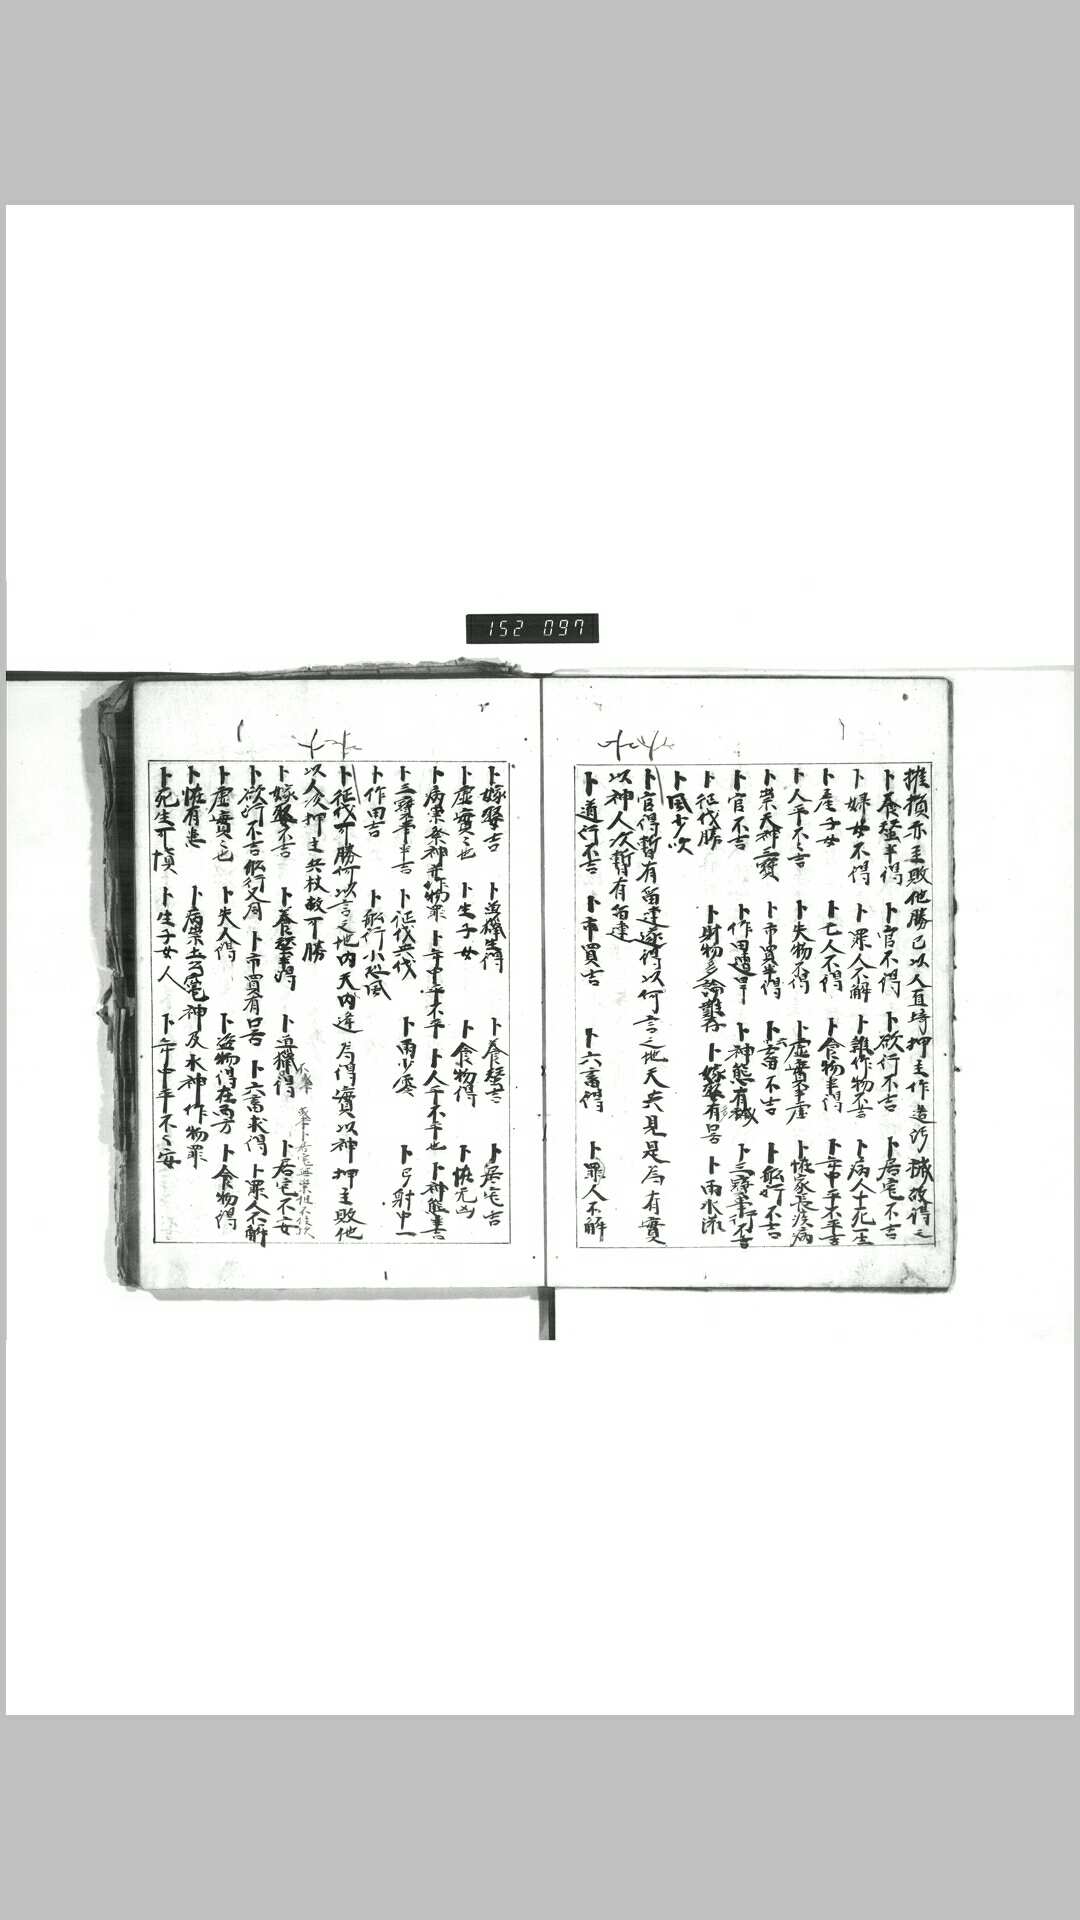 152 097
推損亦主敗他勝已以人直培押主作造污穢故得之
卜養蚕半得 卜官不得 卜欲行不吉 卜居宅不吉
卜婦女不得 卜罪人不解 卜雜作物不吉 卜病人十死一生
卜産子女 卜亡人不得 卜食物半得 卜年中平不平吉
卜人平不々吉 卜失物不得 卜虚實半虚 卜怪家長疾病
卜祟天神三寶 卜市買半得 卜六畜不吉 卜舩行不吉
卜官不吉 卜作田遭旱 卜神態有穢 卜三寶事行不吉
卜征伐勝 卜財物多論難存 卜嫁娶有 卜雨水涖
卜風少吹
卜官得暫有留連遂得以何言之地天夫見是為有實
以神人次暫有留連
卜道行不吉 卜市買吉 卜六畜得 卜罪人不解
卜嫁娶吉 卜道獵生得 卜養蚕吉 卜居宅吉
卜虚實々也 卜生子女 卜食物得 卜怪无凶
卜病祟祭神并作物祟 卜年中平不平 卜人平不平也 卜神態吉
卜三寶事半吉 卜征伐无伐 卜雨少零 卜弓射中一
卜作田吉 卜舩行小惡風
卜征伐可勝何以言之地内天内違為得實以神押主敗他
以人次押主兵杖故可勝
卜嫁娶不吉 卜養蚕半得 卜道獵得 卜居宅不安
卜欲行不吉舩行又同 卜市買有口舌 卜六畜求得 卜罪人不解
卜虚實々也 卜失人得 卜盗物得在西方 卜食物得
卜怪有恙 卜病祟土公宅神及水神作物罪
卜死生可慎 卜生子女人 卜年中平不々安